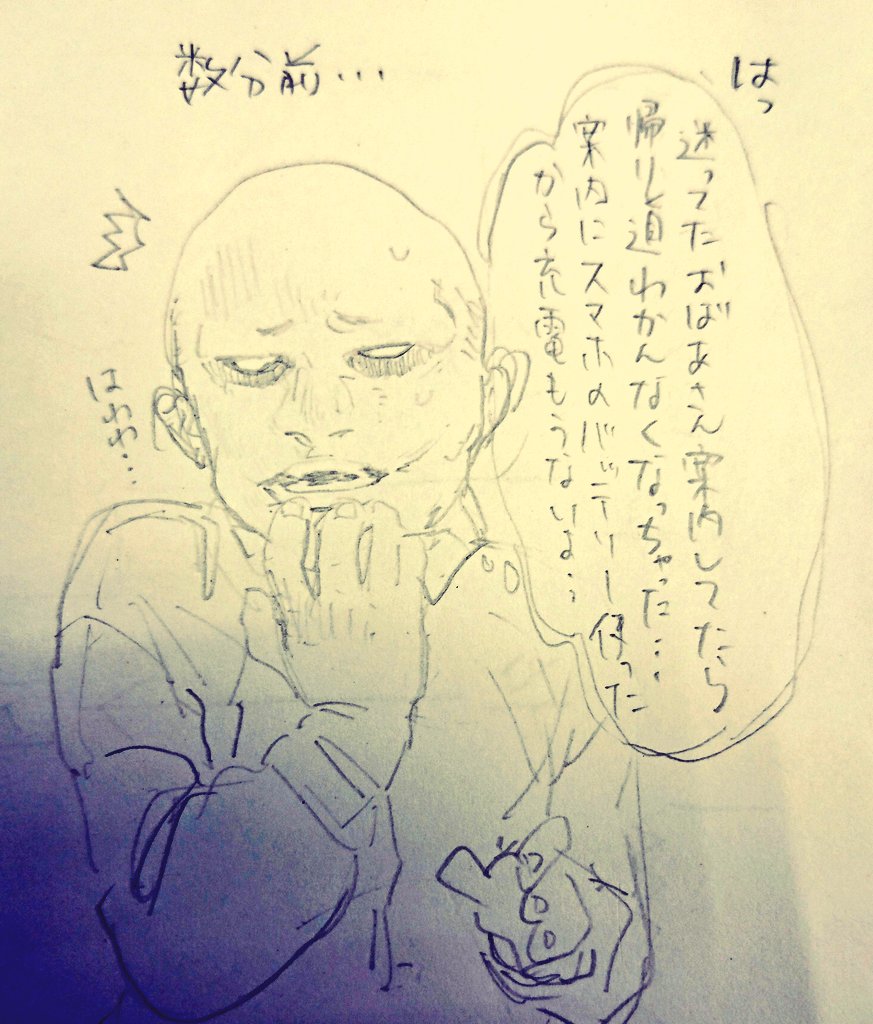 数分前…
はっ
迷ってたおばあさん案内してたら
帰り道わかんなくなっちゃった…
案内にスマホのバッテリー使った
から充電もうないよぅ
はわわ…